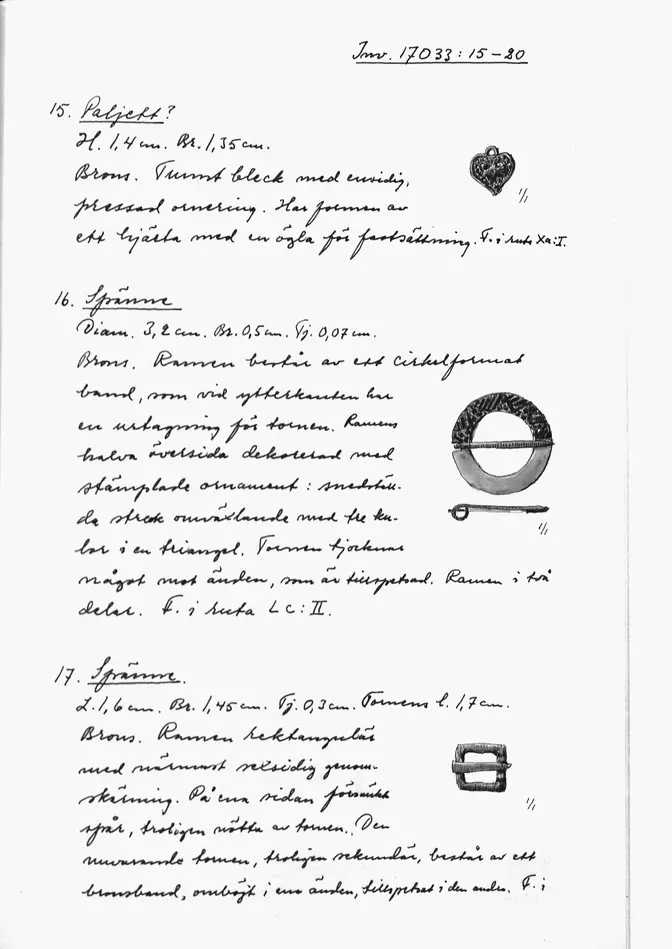 Inv. 17033:15–20
15. Paljett?
H. 1,4 cm. Br. 1,35 cm.
Brons. Tunnt bleck med ensidig,
pressad ornering. Har formen av
ett hjärta med en ögla för fastsättning. F. i ruta Xa:I.
1/1
16. Spänne
Diam. 3,2 cm. Br. 0,5 cm. Tj. 0,07 cm.
Brons. Ramen består av ett cirkelformat
band, som vid ytterkanten har
en urtagning för tornen. Ramens
halva översida dekorerad med
stämplade ornament: snedställ-
da streck omväxlande med tre ku-
lor i en triangel. Tornen tjocknar
något mot änden, som är tillspetsad. Ramen i två
delar. F. i ruta Lc:II.
1/1
17. Spänne.
L. 1,6 cm. Br. 1,45 cm. Tj. 0,3 cm. Tornens l. 1,7 cm.
Brons. Ramen rektangulär
med närmast sexsidig genom-
skärning. På ena sidan försänkt
spår, troligen nötta av tornen. Den
nuvarande tornen, troligen sekundär, består av ett
bronsband, ombögt i ena änden, tillspetsat i den andra. F. i
1/1